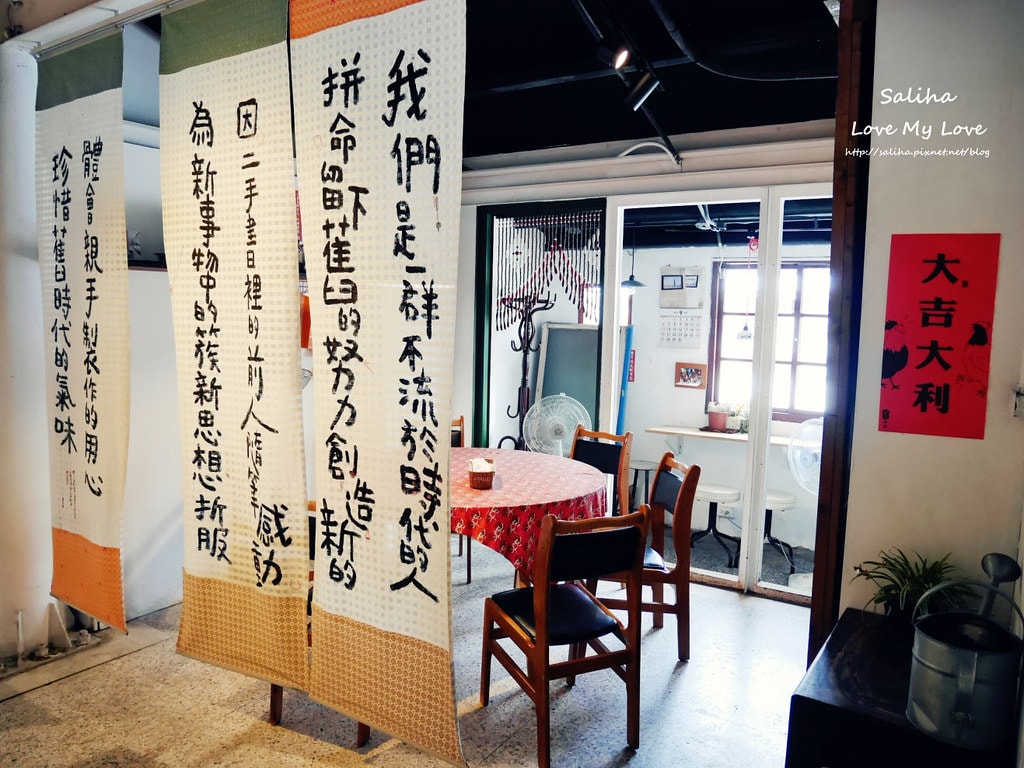 我們是一群不流於時代的人
拼命留下舊的努力創造新的
因二手書日裡的前人隨筆感動
為新事物中的簇新思想折服
體會親手製作的用心
珍惜舊時代的氣味
大吉大利
Saliha
Love My Love
http://saliha.pixnet.net/blog